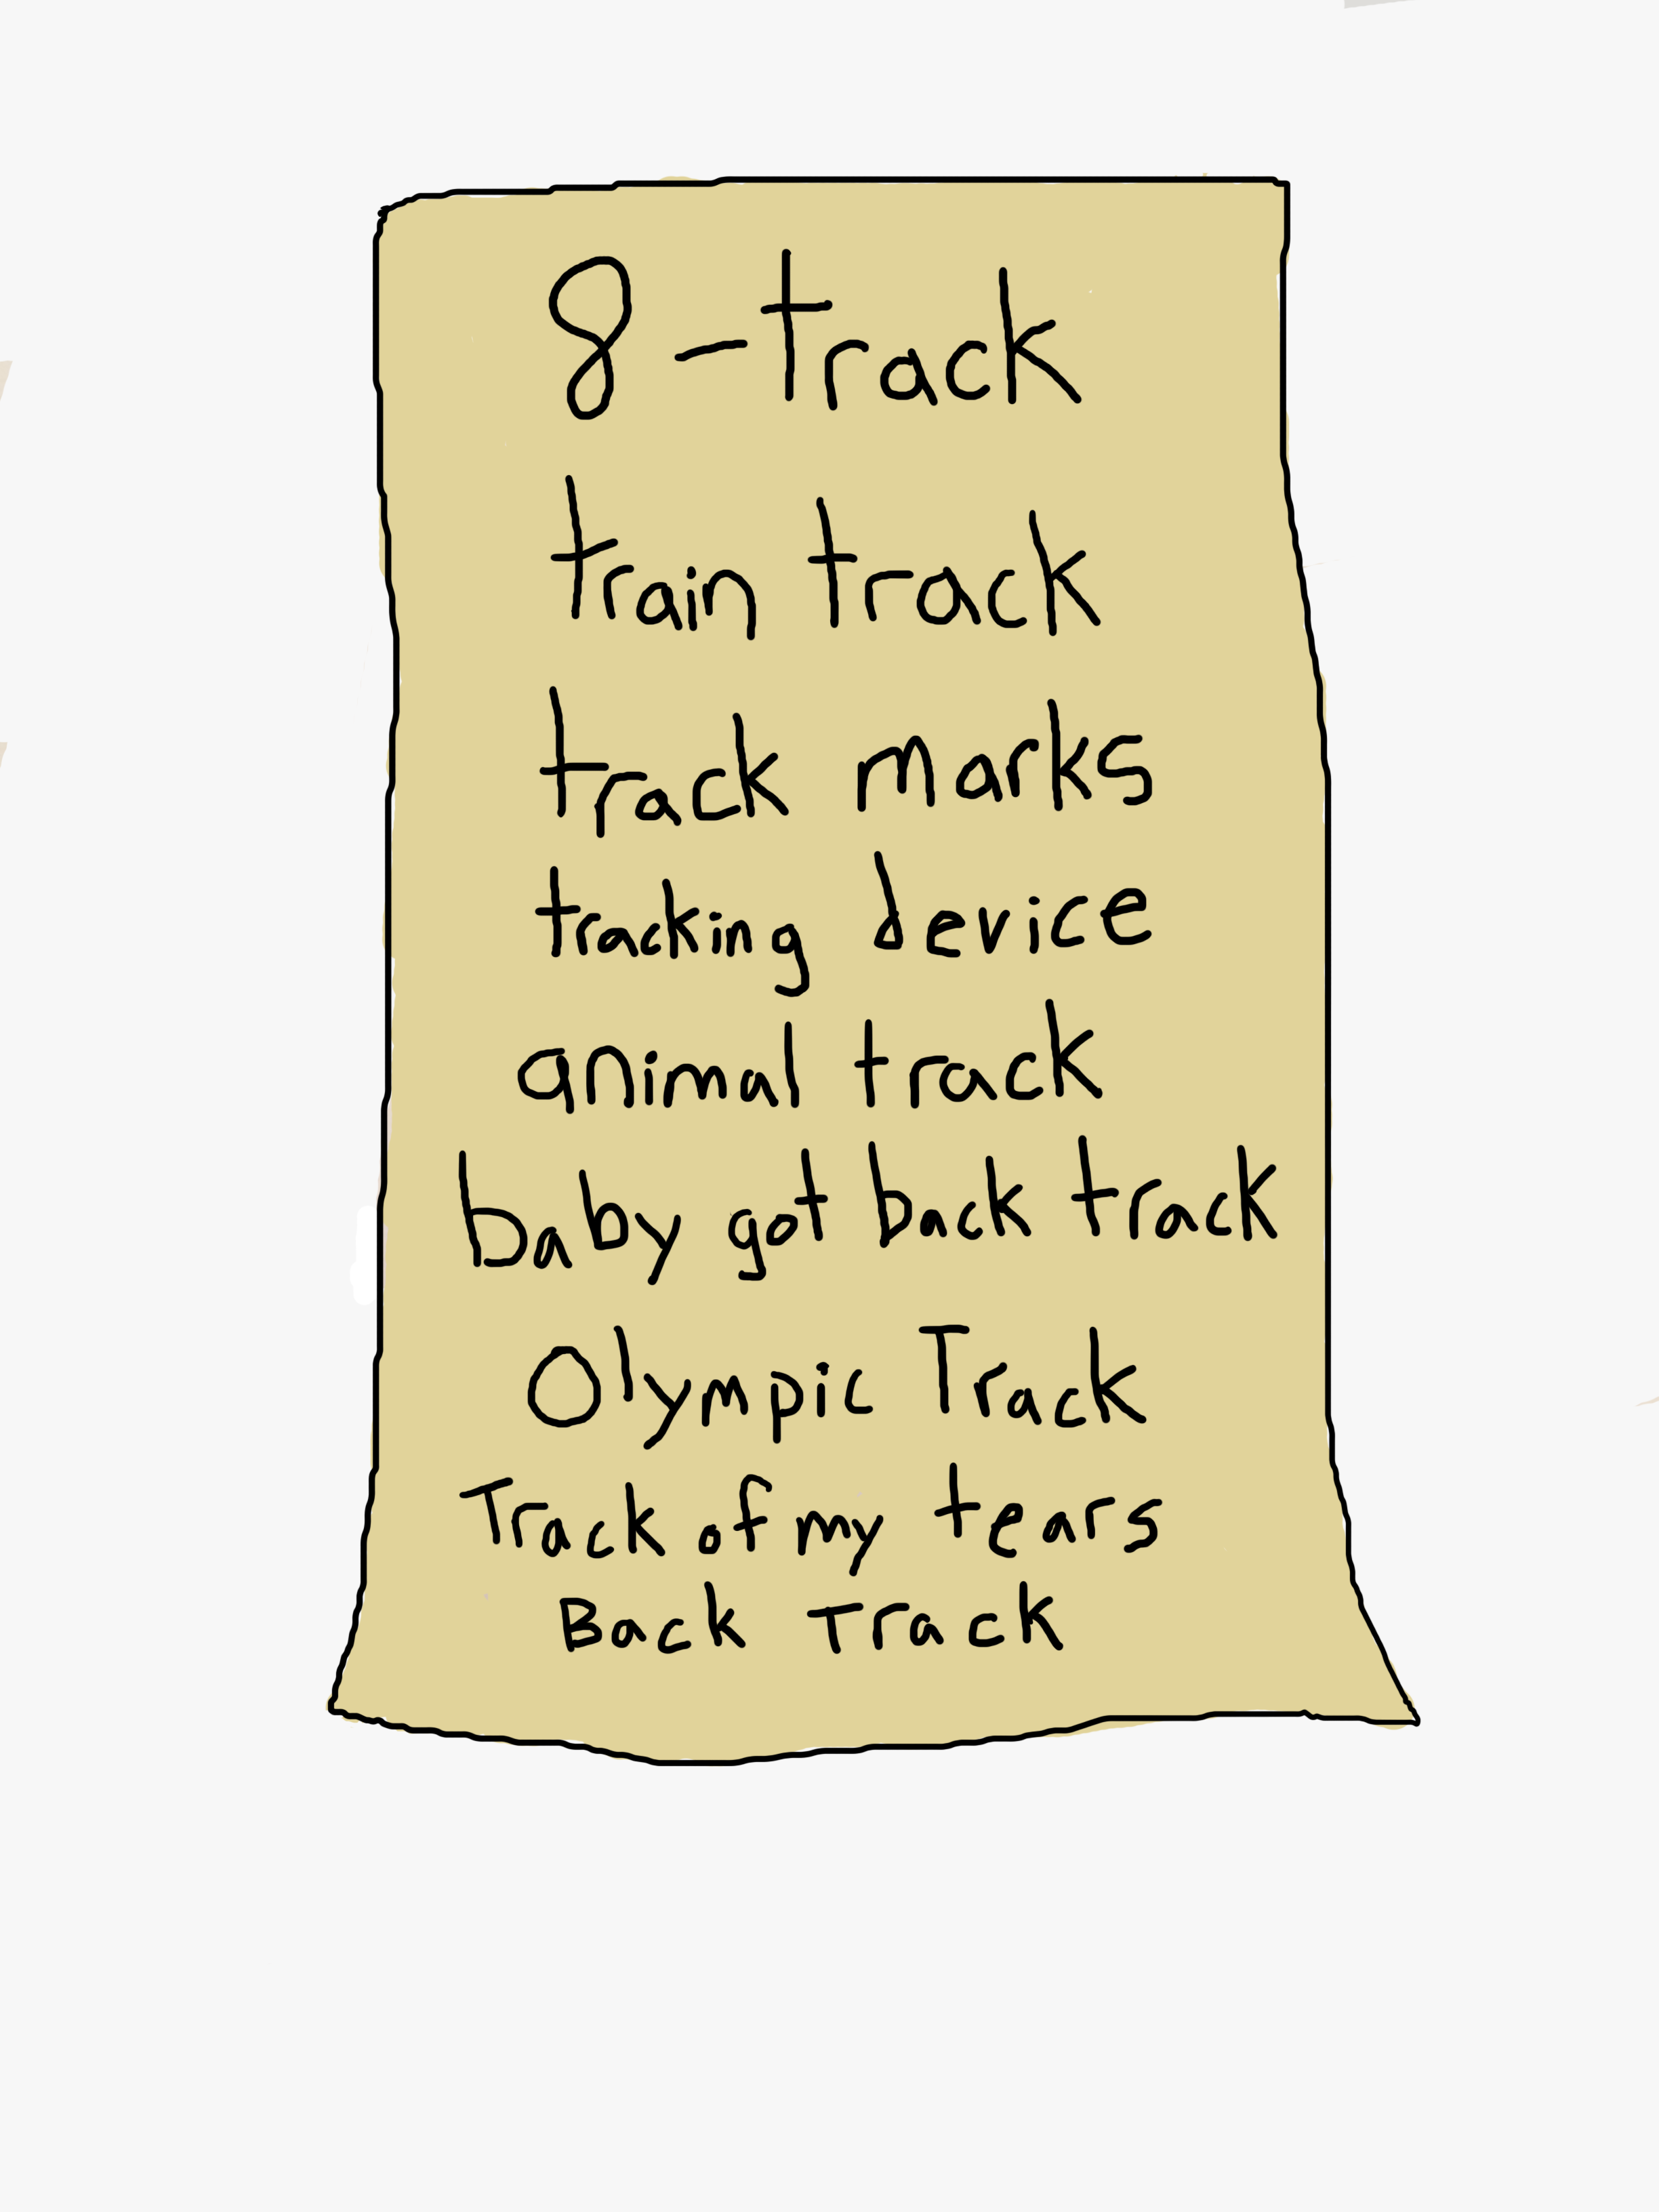 8-track
train track
track marks
tracking device
animal track
baby got back track
Olympic Track
Track of my tears
Back Track